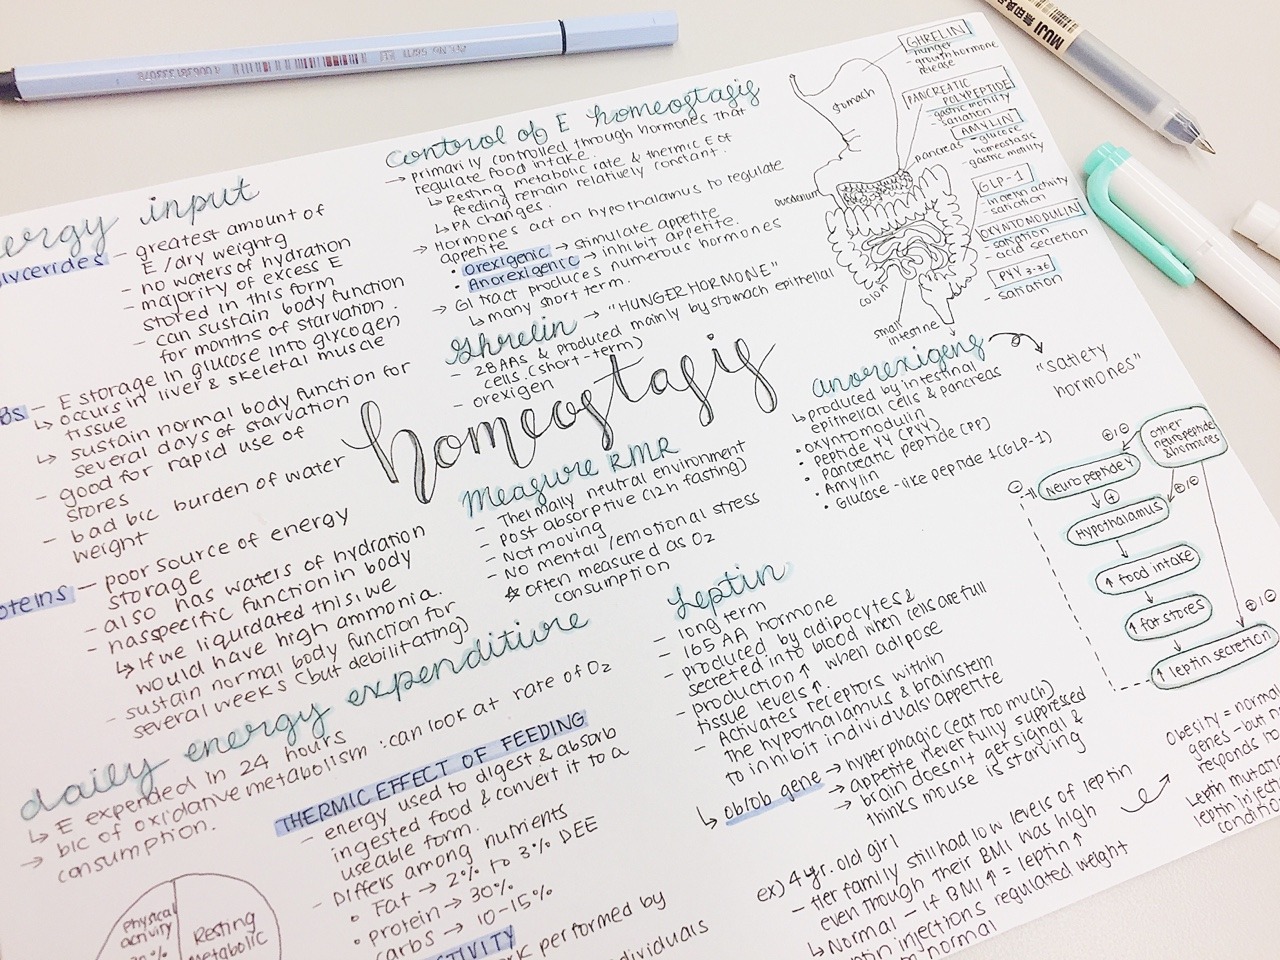 energy input
glycerides - greatest amount of
E / dry weightg
- no waters of hydration
- majority of excess E
stored in this form
- can sustain body function
for months of starvation.
bs - E storage in glucose into glycogen
↳ occurs in liver & skeletal muscle
tissue
↳ sustain normal body function for
several days of starvation
- good for rapid use of
stores
- bad b/c burden of water
weight
oteins - poor source of energy
storage
- also has waters of hydration
- has specific function in body
↳ If we liquidated this, we
would have high ammonia.
- sustain normal body function for
several weeks (but debilitating)
daily energy expenditure
↳ E expended in 24 hours
→ b/c of oxidative metabolism: can look at rate of O2
consumption.
Physical
activity
Resting
Metabolic
THERMIC EFFECT OF FEEDING
- energy used to digest & absorb
ingested food & convert it to a
useable form.
- Differs among nutrients
• Fat → 2% to 3% DEE
• protein → 30%
carbs → 10-15%
TIVITY
performed by
dividuals
Control of E homeostasis
→ primarily controlled through hormones that
regulate food intake.
↳ Resting metabolic rate & thermic E of
feeding remain relatively constant.
↳ PA changes.
→ Hormones act on hypothalamus to regulate
appetite
• Orexigenic → stimulate appetite
• Anorexigenic → inhibit appetite.
→ GI tract produces numerous hormones
↳ many short term.
Ghrelin → "HUNGER HORMONE"
- 28 AAS & produced mainly by stomach epithelial
cells. (short-term)
- orexigen
homeostasis
Measure RMR
- Thermally neutral environment
- post absorptive (12h fasting)
- Not moving
- No mental / emotional stress
☆ Often measured as O2
consumption
Leptin
- long term
- 165 AA hormone
- produced by adipocytes &
secreted into blood when cells are full
- production ↑ when adipose
tissue levels ↑.
- Activates receptors within
the hypothalamus & brainstem
to inhibit individuals appetite
↳ ob/ob gene → hyperphagic (eat too much)
→ appetite never fully suppressed
→ brain doesn't get signal &
thinks mouse is starving
ex) 4 yr. old girl
- Her family still had low levels of leptin
even though their BMI was high
↳ Normal - if BMI ↑ = leptin ↑
ptin injections regulated weight
normal
Obesity = normal
genes - but n
responds to
Leptin mutatio
leptin inject
conditio
anorexigens
"satiety
hormones"
↳ produced by intestinal
epithelial cells & pancreas
• oxyntomodulin
• peptide YY (PYY)
• pancreatic peptide (PP)
• Amylin
• Glucose-like peptide 1 (GLP-1)
stomach
pancreas
Duodenum
colon
small
intestine
GHRELIN
- hunger
- growth hormone
release
PANCREATIC
POLYPEPTIDE
- gastric motility
- satiation
AMYLIN
- glucose
homeostasis
- gastric motility
GLP-1
- satiation
OXYNTOMODULIN
- satiation
- acid secretion
PYY 3-36
- satiation
other
neuropeptide
& hormones
Neuropeptide Y
Hypothalamus
↑ food intake
↑ fat stores
↑ leptin secretion
MUJI 無印良品